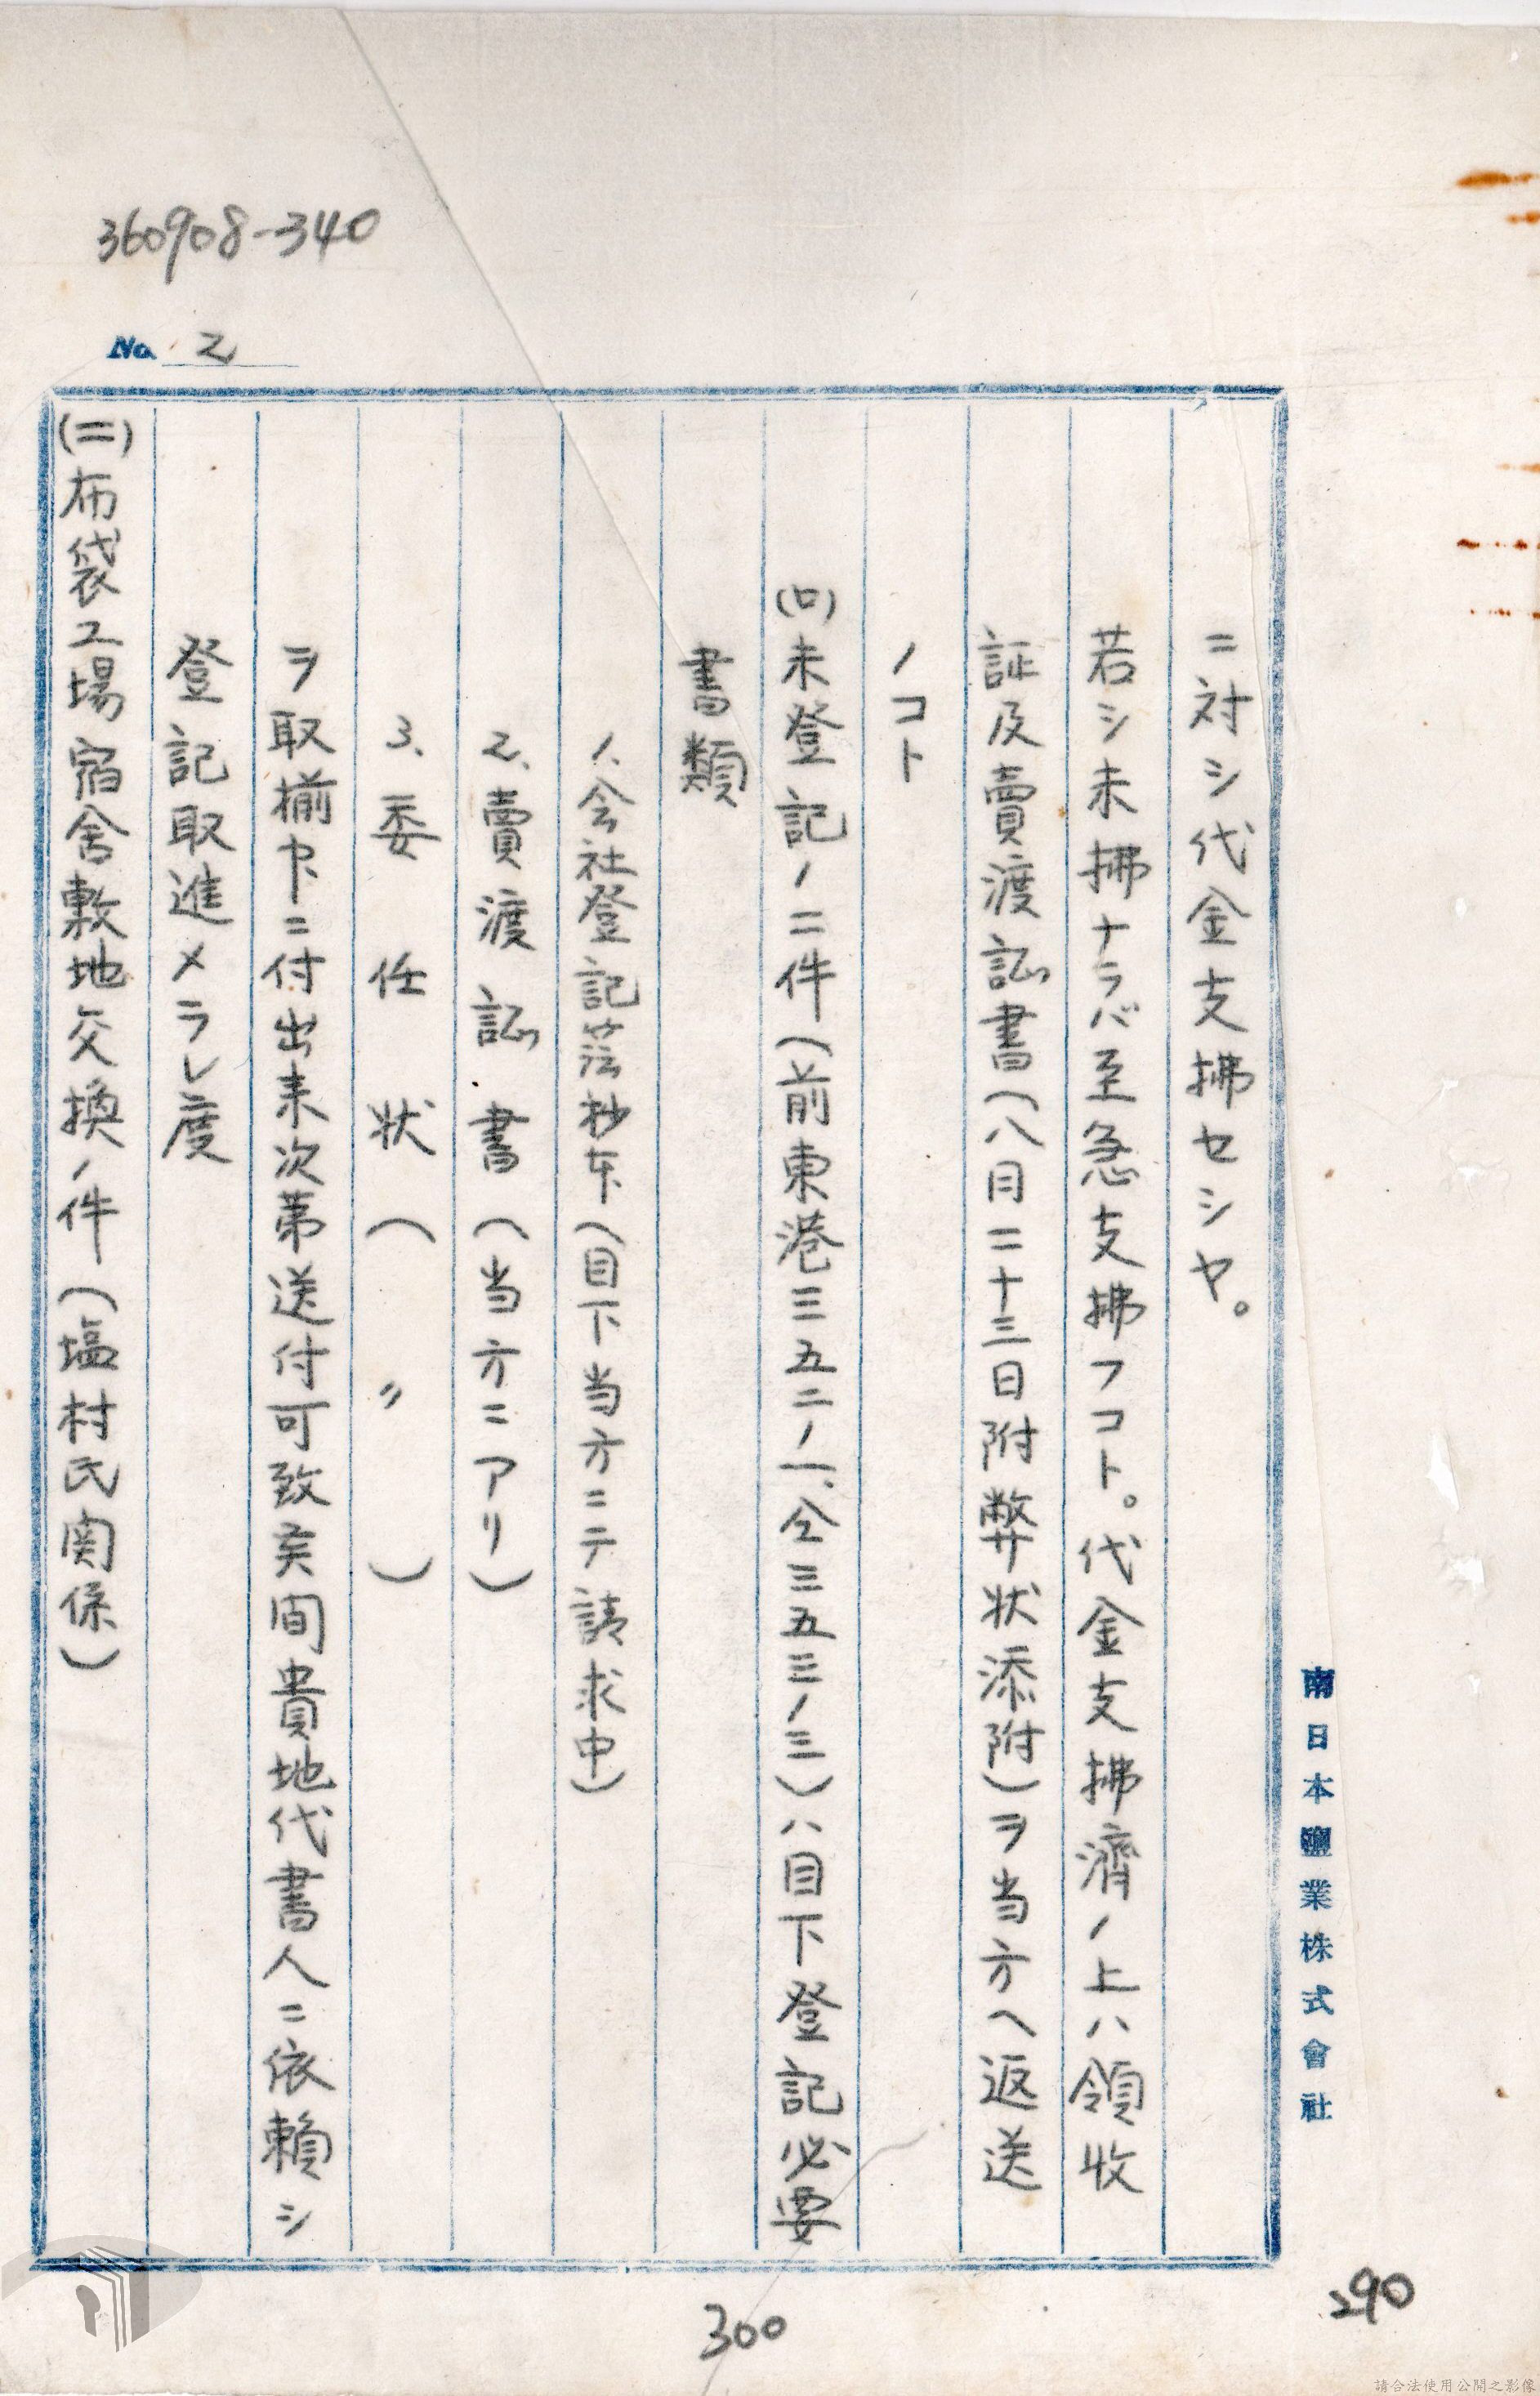 360908-340
No. 2
ニ対シ代金支拂セシヤ。
若シ未拂ナラバ至急支拂フコト。代金支拂濟ノ上ハ領收
証及賣渡証書(八月二十三日附弊状添附)ヲ当方ヘ返送
ノコト
(ロ)未登記ノ二件(前東港三五二ノ一、仝三五三ノ三)ハ目下登記必要
書類
1、会社登記簿抄本(目下当方ニテ請求中)
2、賣渡証書(当方ニアリ)
3、委任状(〃)
ヲ取揃中ニ付出来次第送付可致候間貴地代書人ニ依賴シ
登記取進メラレ度
(二)布袋工場宿舎敷地交換ノ件(塩村氏関係)
南日本鹽業株式會社
300
290
請合法使用公開之影像